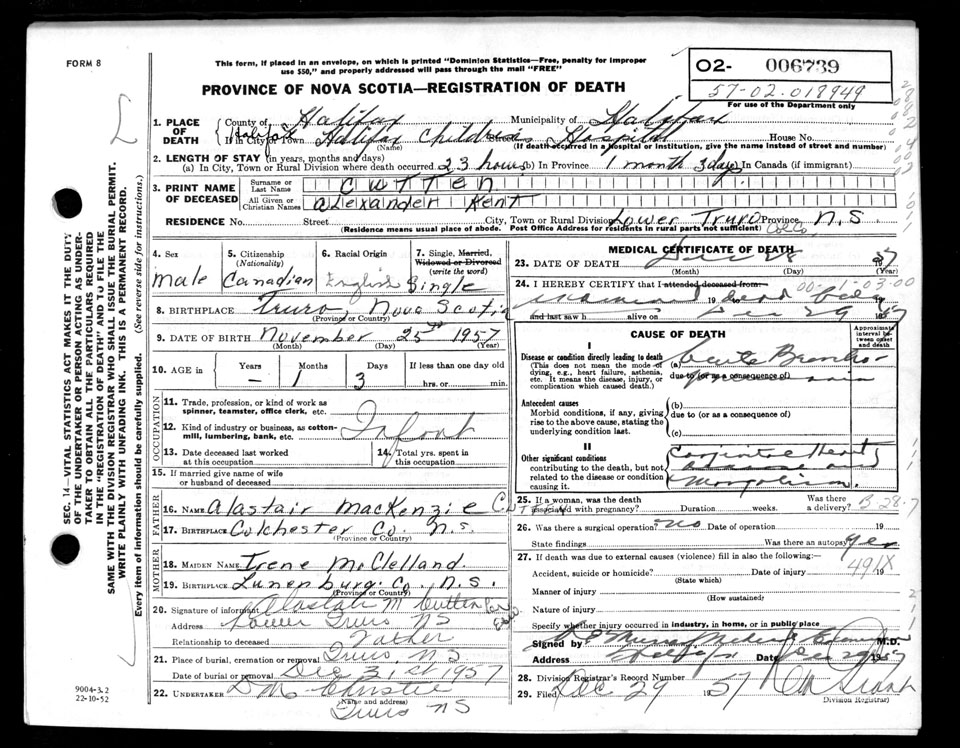 FORM 8
This form, if placed in an envelope, on which is printed "Dominion Statistics—Free, penalty for improper
use $50," and properly addressed will pass through the mail "FREE"
O2- 006739
57-02.018949
For use of the Department only
PROVINCE OF NOVA SCOTIA—REGISTRATION OF DEATH
1. PLACE OF DEATH
County of Halifax Municipality of Halifax
If in City or Town Halifax Halifax Children's Hospital Street House No.
(Name) (If death occurred in a hospital or institution, give the name instead of street and number)
2. LENGTH OF STAY (in years, months and days)
(a) In City, Town or Rural Division where death occurred 23 hours (b) In Province 1 month 3 days In Canada (if immigrant)
3. PRINT NAME OF DECEASED
Surname or Last Name CUTTEN
All Given or Christian Names Alexander Kent
RESIDENCE No. Street City, Town or Rural Division Lower Truro Province N.S.
(Residence means usual place of abode. Post Office Address for residents in rural parts not sufficient) Col Co
4. Sex Male
5. Citizenship (Nationality) Canadian
6. Racial Origin English
7. Single, Married, Widowed or Divorced (write the word) Single
8. BIRTHPLACE Truro, Nova Scotia
(Province or Country)
9. DATE OF BIRTH November 25th 1957
(Month) (Day) (Year)
10. AGE in Years — Months 1 Days 3 If less than one day old hrs. or min.
OCCUPATION
11. Trade, profession, or kind of work as spinner, teamster, office clerk, etc.
12. Kind of industry or business, as cotton-mill, lumbering, bank, etc. Infant
13. Date deceased last worked at this occupation
14. Total yrs. spent in this occupation
15. If married give name of wife or husband of deceased
FATHER
16. NAME Alastair MacKenzie Cutten
17. BIRTHPLACE Colchester Co. N.S.
(Province or Country)
MOTHER
18. MAIDEN NAME Irene McClelland
19. BIRTHPLACE Lunenburg Co. N.S.
(Province or Country)
20. Signature of informant Alastair M Cutten
Address Lower Truro NS
Relationship to deceased Father
21. Place of burial, cremation or removal Truro, NS
Date of burial or removal Dec 31st 1957
22. UNDERTAKER D Mc Christie
(Name and address)
Truro NS
MEDICAL CERTIFICATE OF DEATH
23. DATE OF DEATH Dec 28 1957
(Month) (Day) (Year)
24. I HEREBY CERTIFY that I attended deceased from 00-1-03-00
examined 19 dead body
and last saw h alive on Dec 29 1957
CAUSE OF DEATH
Approximate interval between onset and death
I
Disease or condition directly leading to death
(This does not mean the mode of dying, e.g., heart failure, asthenia, etc. It means the disease, injury, or complication which caused death.)
(a) Acute Broncho-
due to (or as a consequence of)
Antecedent causes
Morbid conditions, if any, giving rise to the above cause, stating the underlying condition last.
(b)
due to (or as a consequence of)
(c)
II
Other significant conditions
contributing to the death, but not related to the disease or condition causing it.
Congenital Heart
Disease and
Mongolism.
25. If a woman, was the death associated with pregnancy? Duration weeks. Was there a delivery? B-28-7
26. Was there a surgical operation? no Date of operation 19
State findings Was there an autopsy? Yes
27. If death was due to external causes (violence) fill in also the following:—
491X
Accident, suicide or homicide? Date of injury 19
(State which)
Manner of injury
(How sustained)
Nature of injury
Specify whether injury occurred in industry, in home, or in public place
Signed by M.D.
Address Halifax Date Dec 29 1957
28. Division Registrar's Record Number
29. Filed Dec 29 1957
Division Registrar)
SEC. 14—VITAL STATISTICS ACT MAKES IT THE DUTY
OF THE UNDERTAKER OR PERSON ACTING AS UNDER-
TAKER TO OBTAIN ALL THE PARTICULARS REQUIRED
IN THE "REGISTRATION OF DEATH" AND FILE THE
SAME WITH THE DIVISION REGISTRAR WHO SHALL ISSUE THE BURIAL PERMIT.
WRITE PLAINLY WITH UNFADING INK. THIS IS A PERMANENT RECORD.
Every item of information should be carefully supplied. (See reverse side for instructions.)
9004-3.2
22-10-52